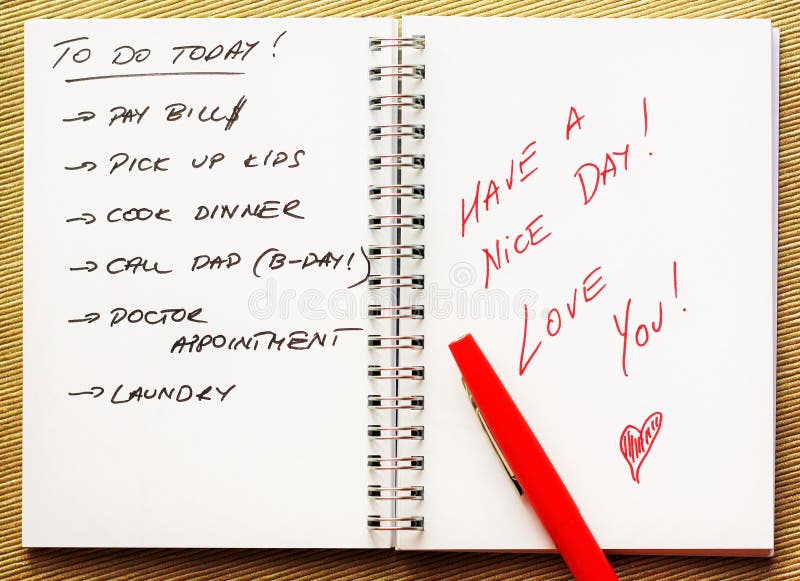 TO DO TODAY!
→ PAY BILL$
→ PICK UP KIDS
→ COOK DINNER
→ CALL DAD (B-DAY!)
→ DOCTOR
APPOINTMENT
→ LAUNDRY
HAVE A
NICE DAY!
LOVE
YOU!
dreamstime